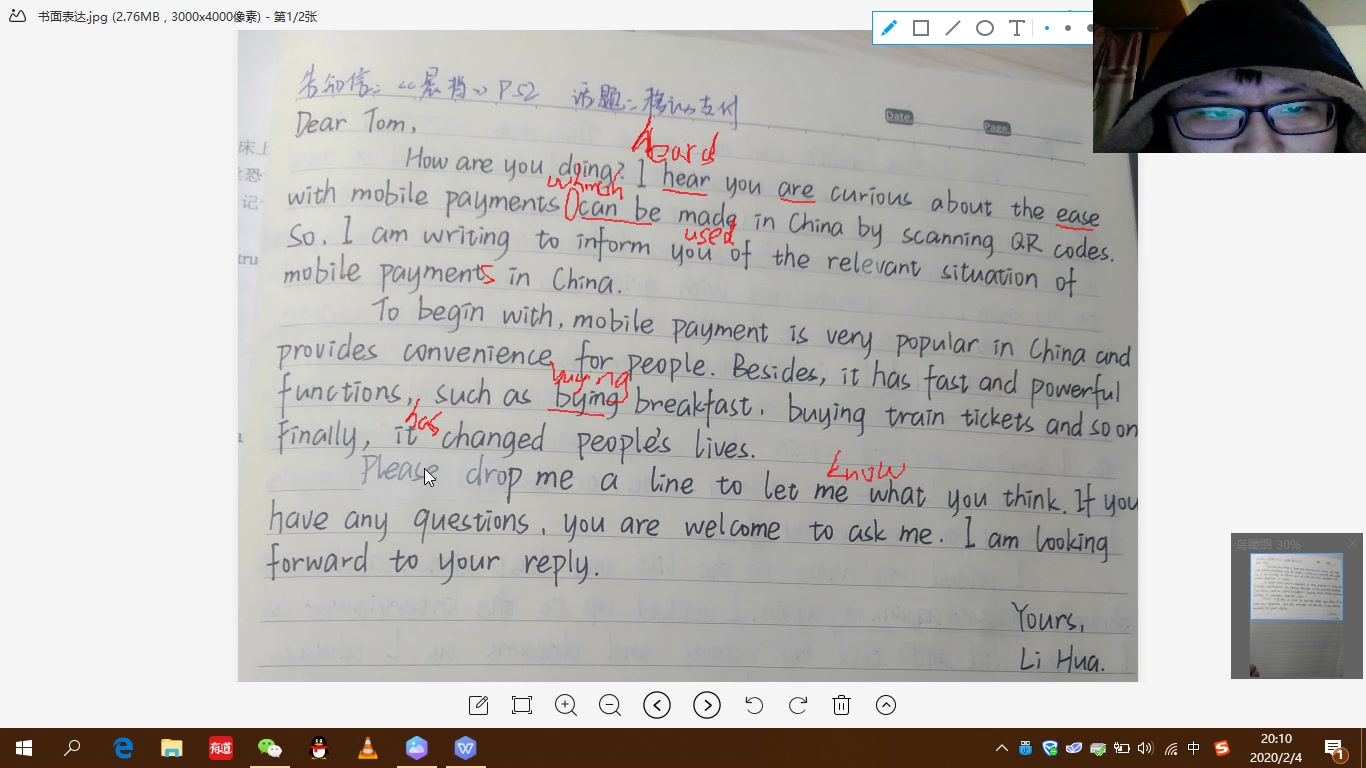 书面表达.jpg (2.76MB , 3000x4000像素) - 第1/2张
告知信:《晨背》P52 话题:移动支付
Date.
Page.
Dear Tom,
Heard
How are you doing? I hear you are curious about the ease
which
with mobile payments can be made in China by scanning QR codes.
used
So, I am writing to inform you of the relevant situation of
mobile payments in China.
To begin with, mobile payment is very popular in China and
provides convenience for people. Besides, it has fast and powerful
buying
functions, such as bying breakfast, buying train tickets and so on
has
Finally, it changed people's lives.
know
Please drop me a line to let me what you think. If you
have any questions, you are welcome to ask me. I am looking
forward to your reply.
Yours,
Li Hua.
床上
恐
记
tru
鸟瞰图 30%
有道
中
20:10
2020/2/4
1